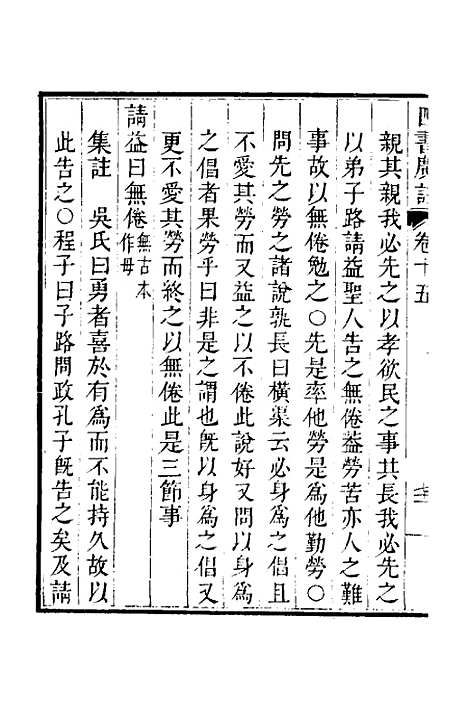 四書廣註 卷十五
親其親我必先之以孝欲民之事其長我必先之
以弟子路請益聖人告之無倦葢勞苦亦人之難
事故以無倦勉之〇先是率他勞是為他勤勞〇
問先之勞之諸說孰長曰橫渠云必身為之倡且
不愛其勞而又益之以不倦此說好又問以身為
之倡者果勞乎曰非是之謂也既以身為之倡又
更不愛其勞而終之以無倦此是三節事
請益曰無倦無古本作毋
集註 吳氏曰勇者喜於有為而不能持久故以
此告之〇程子曰子路問政孔子既告之矣及請